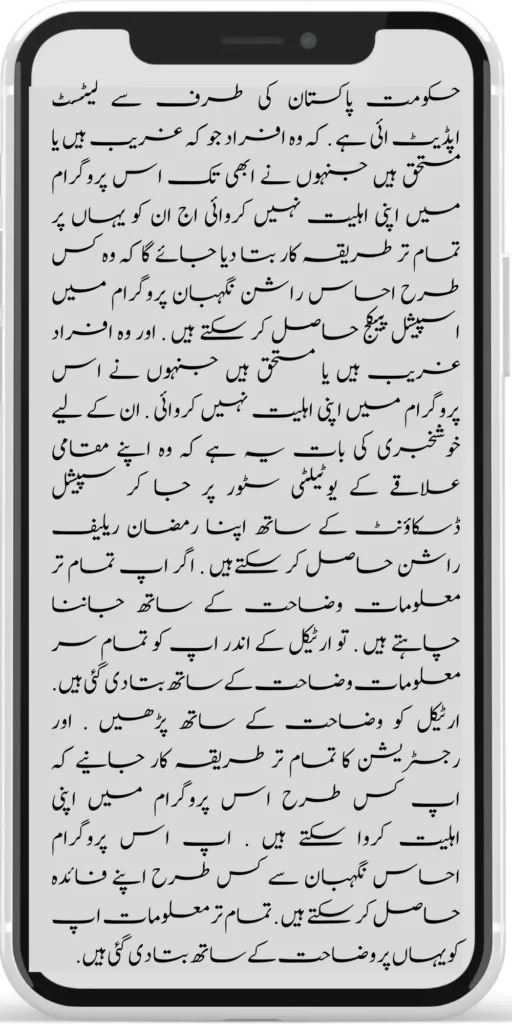 حکومت پاکستان کی طرف سے لیٹسٹ
اپڈیٹ ائی ہے. کہ وہ افراد جو کہ غریب ہیں یا
مستحق ہیں جنہوں نے ابھی تک اس پروگرام
میں اپنی اہلیت نہیں کروائی اج ان کو یہاں پر
تمام تر طریقہ کار بتا دیا جائے گا کہ وہ کس
طرح احساس راشن نگہبان پروگرام میں
اسپیشل پیکج حاصل کر سکتے ہیں. اور وہ افراد
غریب ہیں یا مستحق ہیں جنہوں نے اس
پروگرام میں اپنی اہلیت نہیں کروائی. ان کے لیے
خوشخبری کی بات یہ ہے کہ وہ اپنے مقامی
علاقے کے یوٹیلٹی سٹور پر جا کر سپیشل
ڈسکاؤنٹ کے ساتھ اپنا رمضان ریلیف
راشن حاصل کر سکتے ہیں. اگر اپ تمام تر
معلومات وضاحت کے ساتھ جاننا
چاہتے ہیں. تو ارٹیکل کے اندر اپ کو تمام سر
معلومات وضاحت کے ساتھ بتا دی گئی ہیں.
ارٹیکل کو وضاحت کے ساتھ پڑھیں. اور
رجسٹریشن کا تمام تر طریقہ کار جانیے کہ
اپ کس طرح اس پروگرام میں اپنی
اہلیت کروا سکتے ہیں. اپ اس پروگرام
احساس نگہبان سے کس طرح اپنے فائدہ
حاصل کر سکتے ہیں. تمام تر معلومات اپ
کو یہاں پر وضاحت کے ساتھ بتا دی گئی ہیں.